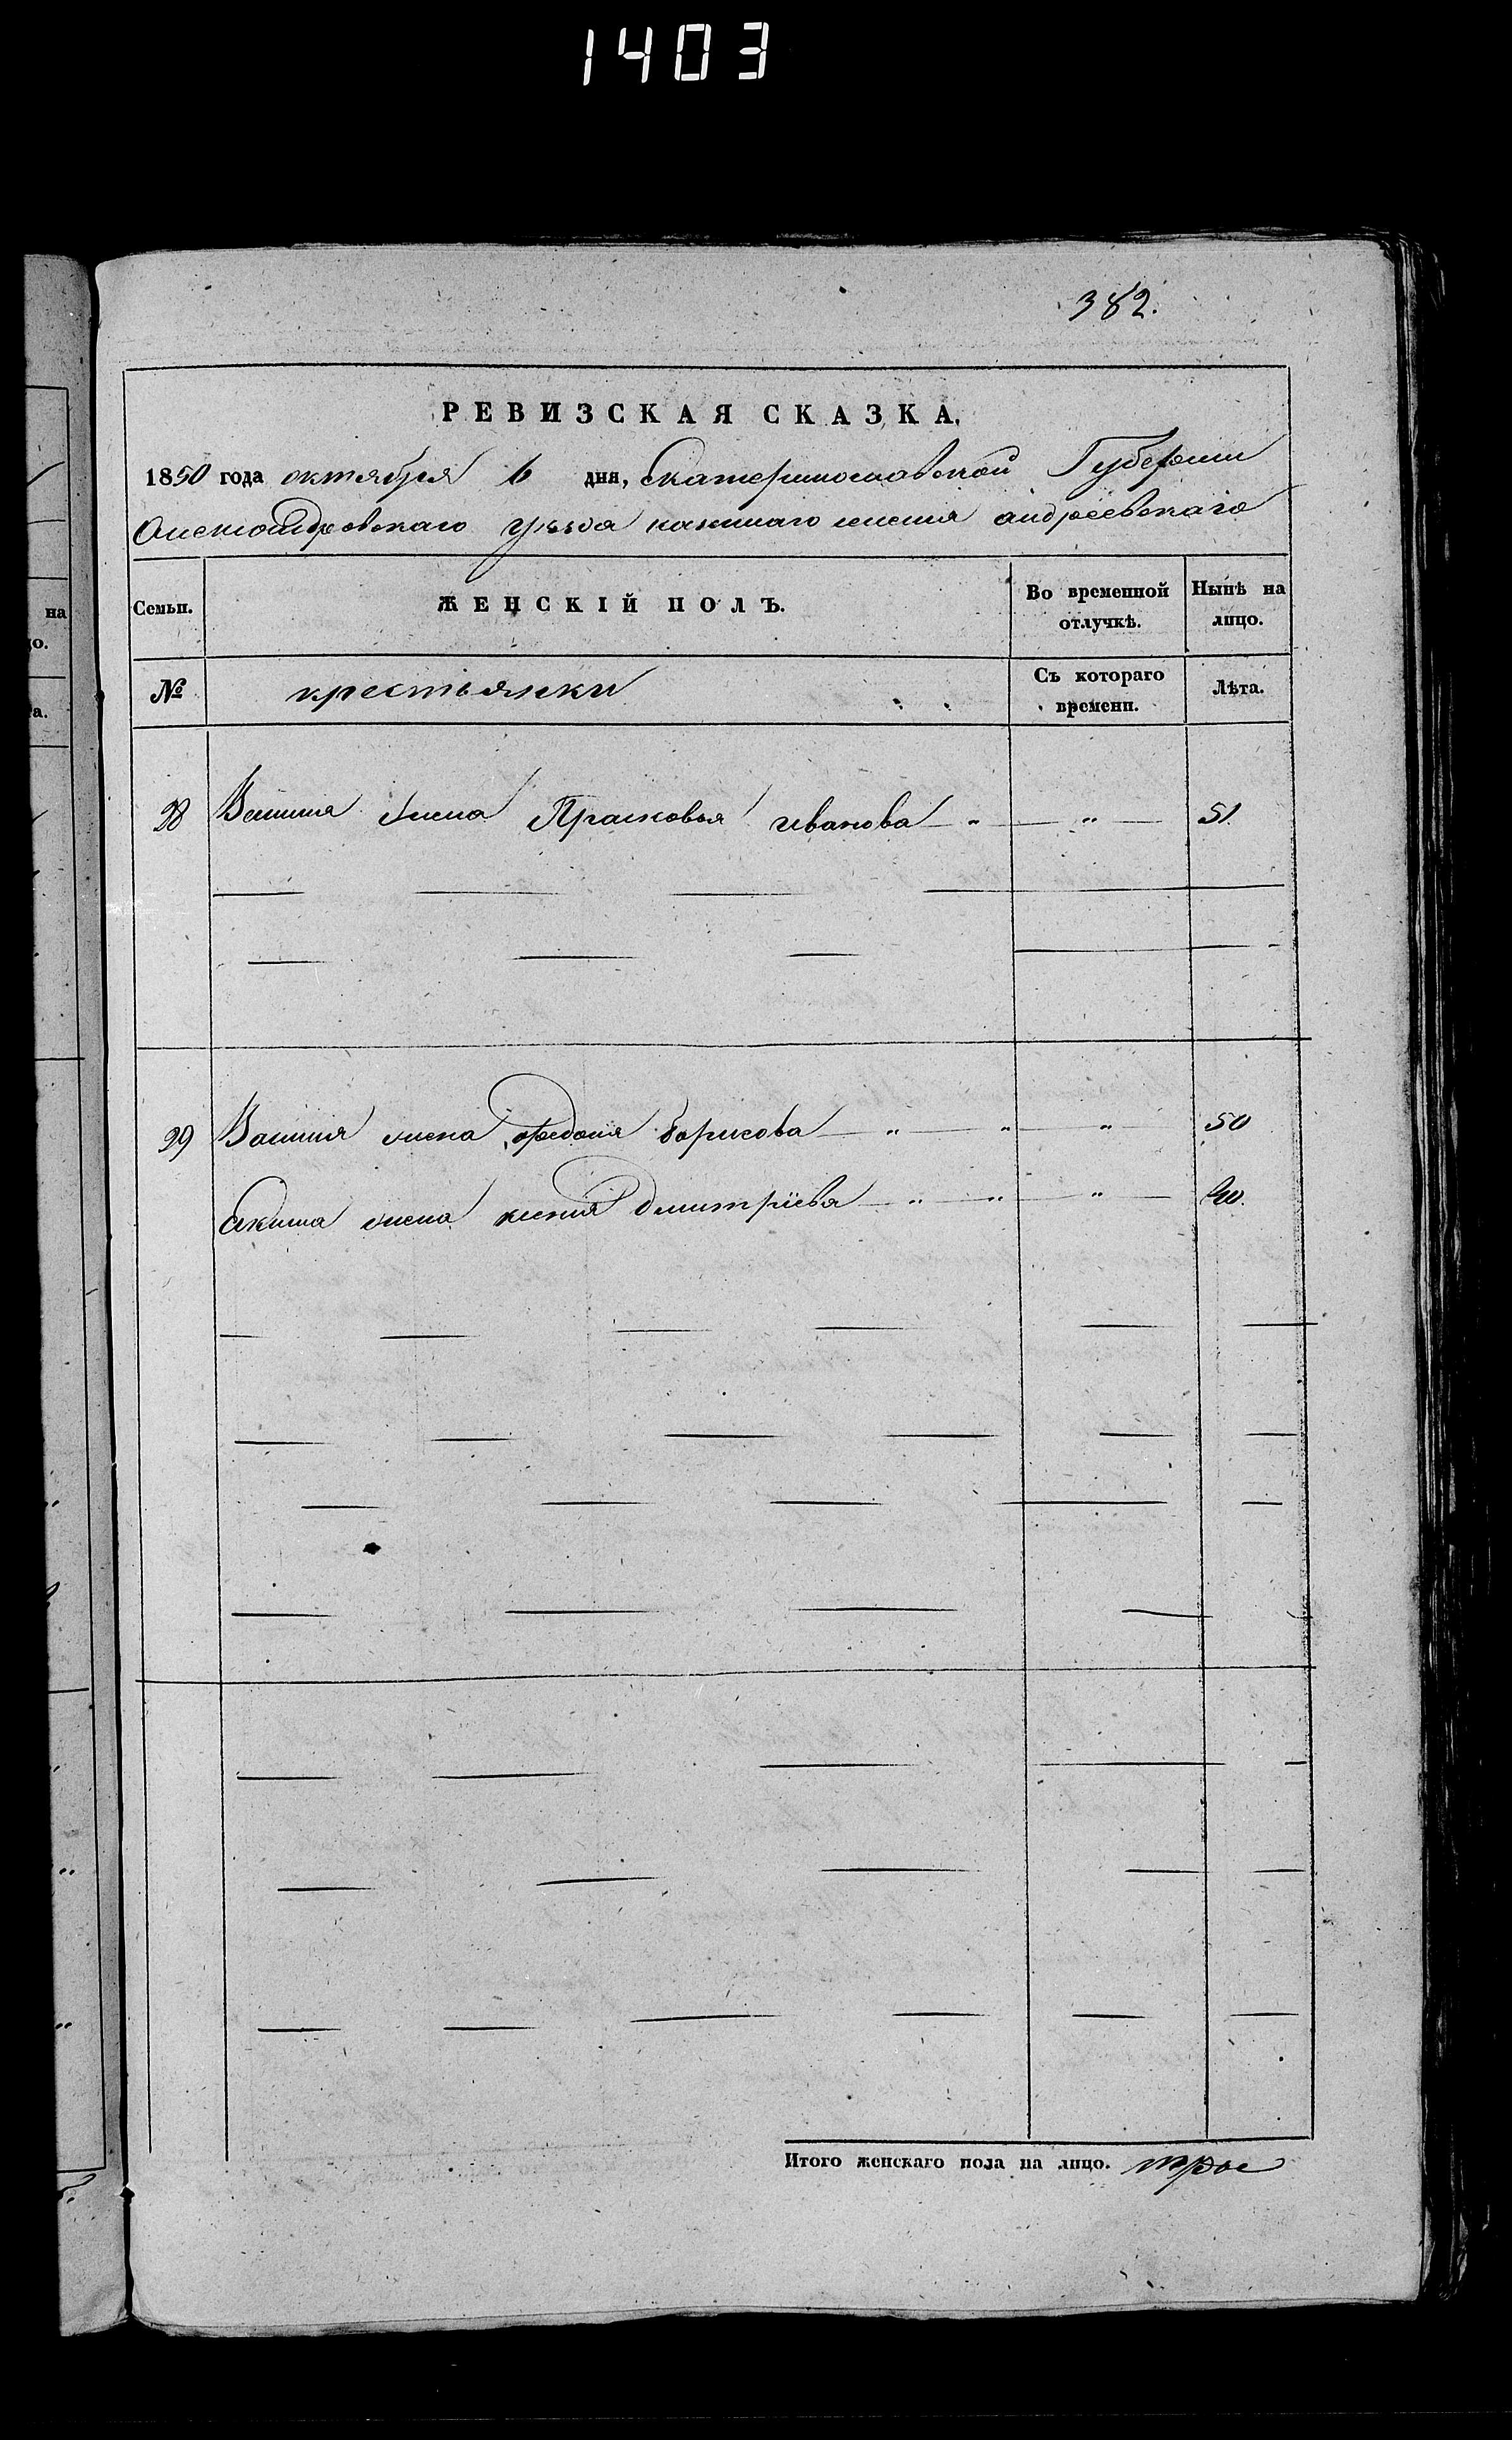 1403
382.
РЕВИЗСКАЯ СКАЗКА.
1850 года октября 6 дня, Екатеринославской Губернии
Александровскаго уѣзда имения андреевскаго
Семьи.
ЖЕНСКІЙ ПОЛЪ.
Во временной отлучкѣ.
Нынѣ на лицо.
№
крестьянки
Съ котораго времени.
Лѣта.
28 жена Прасковья иванова — „ — „ — 51
29 жена федосия борисова — „ — „ — „ — 50
жена ксения дмитріева — „ — „ — „ —
Итого женскаго пола на лицо. трое
на
о.
а.